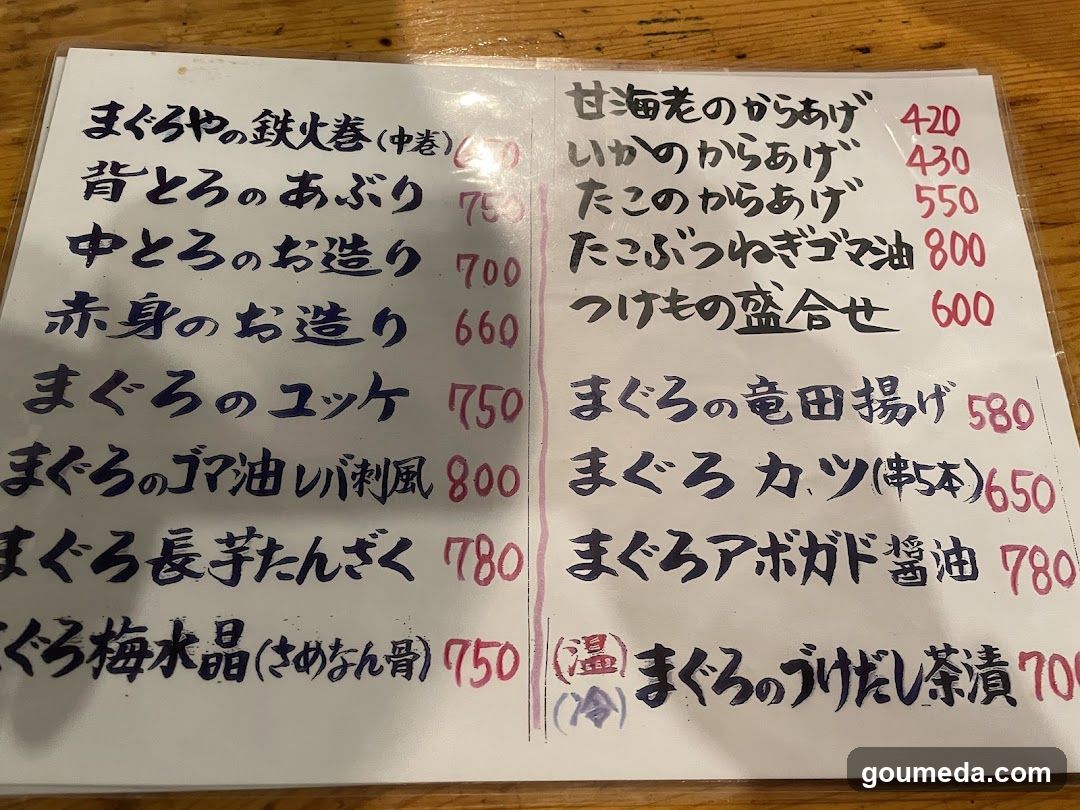 まぐろやの鉄火巻(中巻)
背とろのあぶり 750
中とろのお造り 700
赤身のお造り 660
まぐろのユッケ 750
まぐろのゴマ油レバ刺風 800
まぐろ長芋たんざく 780
まぐろ梅水晶(さめなん骨) 750
甘海老のからあげ 420
いかのからあげ 430
たこのからあげ 550
たこぶつねぎゴマ油 800
つけもの盛合せ 600
まぐろの竜田揚げ 580
まぐろカツ(串5本) 650
まぐろアボガド醤油 780
(温)
(冷)
まぐろのづけだし茶漬 700
goumeda.com